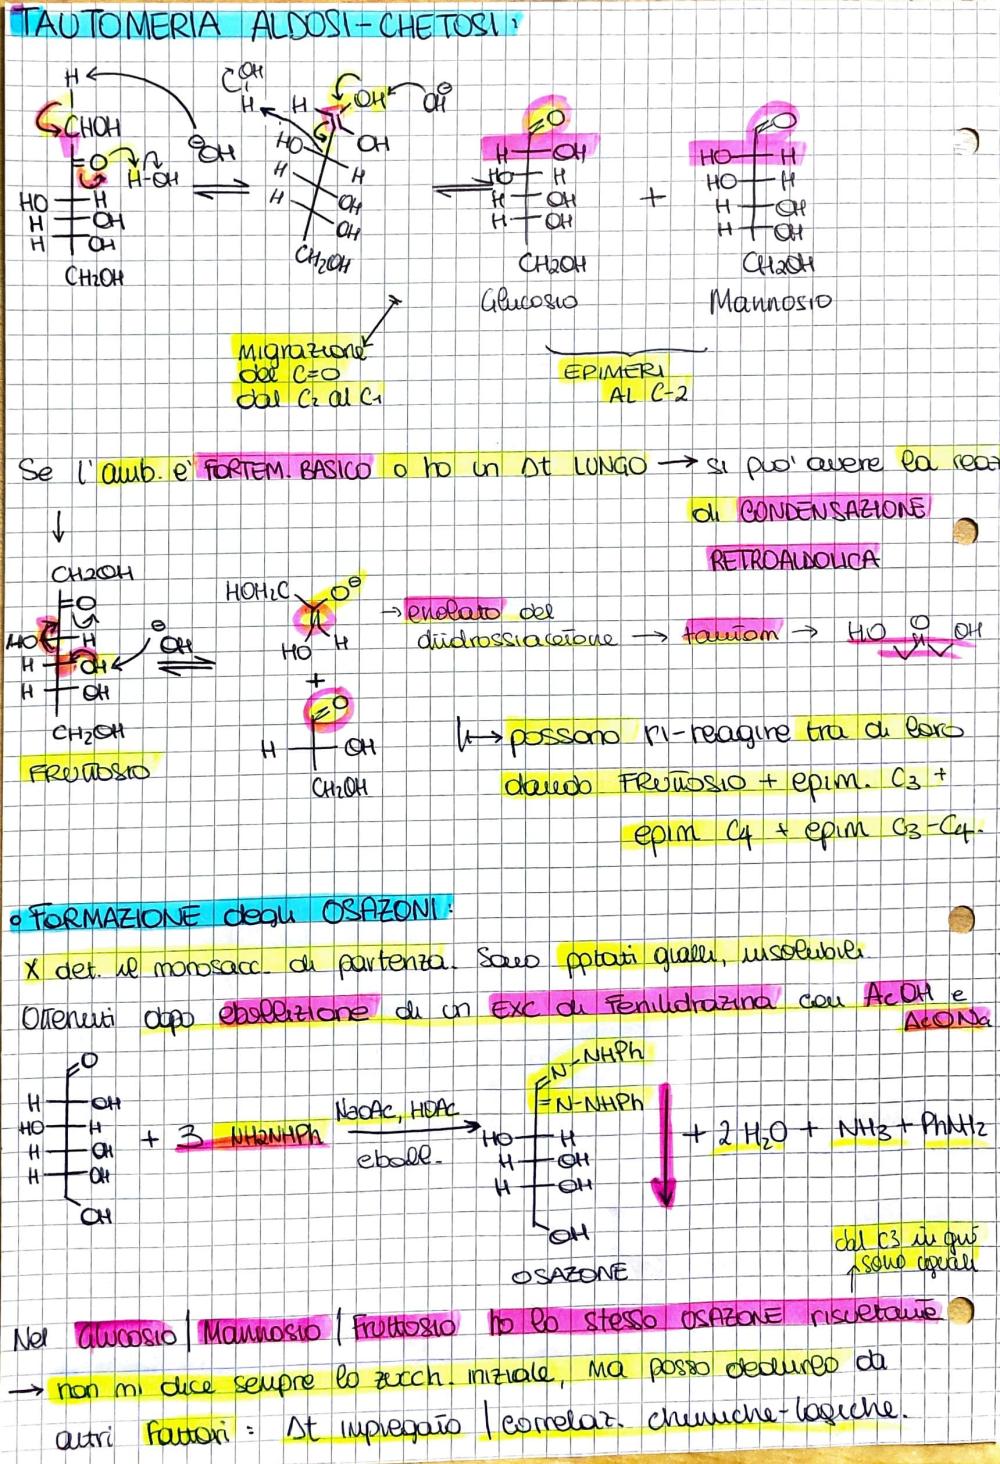 TAUTOMERIA ALDOSI-CHETOSI:
H
CHOH
O
H-OH
⊖OH
HO H
H OH
H OH
CH2OH
OH
C
H
H OH OH⊖
HO OH
H H
H OH
OH
CH2OH
O
H OH
HO H
H OH
H OH
CH2OH
Glucosio
+
O
HO H
HO H
H OH
H OH
CH2OH
Mannosio
Migrazione
del C=O
dal C2 al C1
EPIMERI
AL C-2
Se l'amb. e' FORTEM. BASICO o ho un Δt LUNGO → si puo' avere la reaz
di CONDENSAZIONE
RETROALDOLICA
↓
CH2OH
O
HO H
H OH
H OH
CH2OH
FRUTTOSIO
⊖OH
HOH2C O⊖
HO H
+
O
H OH
CH2OH
→ enolato del
diidrossiacetone → tautom → HO O OH
↳ possono ri-reagire tra di loro
dando FRUTTOSIO + epim. C3 +
epim C4 + epim C3-C4.
• FORMAZIONE degli OSAZONI:
X det. il monosacc. di partenza. Sono pptati gialli, insolubili.
Ottenuti dopo ebollizione di un EXC di Fenilidrazina con AcOH e
AcONa
O
H OH
HO H
H OH
H OH
OH
+ 3 NH2NHPh
NaOAc, HOAc
eboll.
=N-NHPh
=N-NHPh
HO H
H OH
H OH
OH
OSAZONE
+ 2 H2O + NH3 + PhNH2
dal C3 in giù
sono uguali
Nel Glucosio | Mannosio | Fruttosio ho lo stesso OSAZONE risultante
→ non mi dice sempre lo zucch. iniziale, ma posso dedurlo da
altri Fattori: Δt impiegato / correlaz. chimiche-logiche.